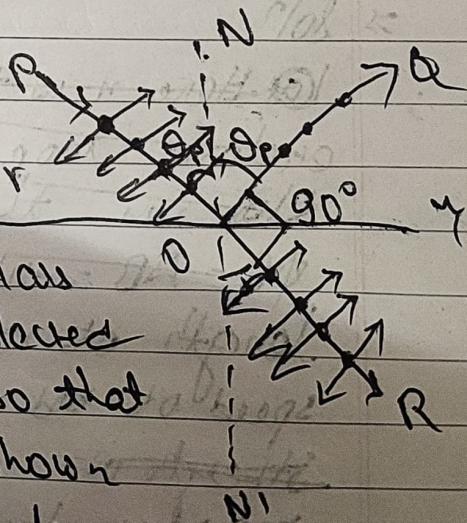 N
P
Q
θp θp
r
90°
y
O
lected
so that
hown
R
N'